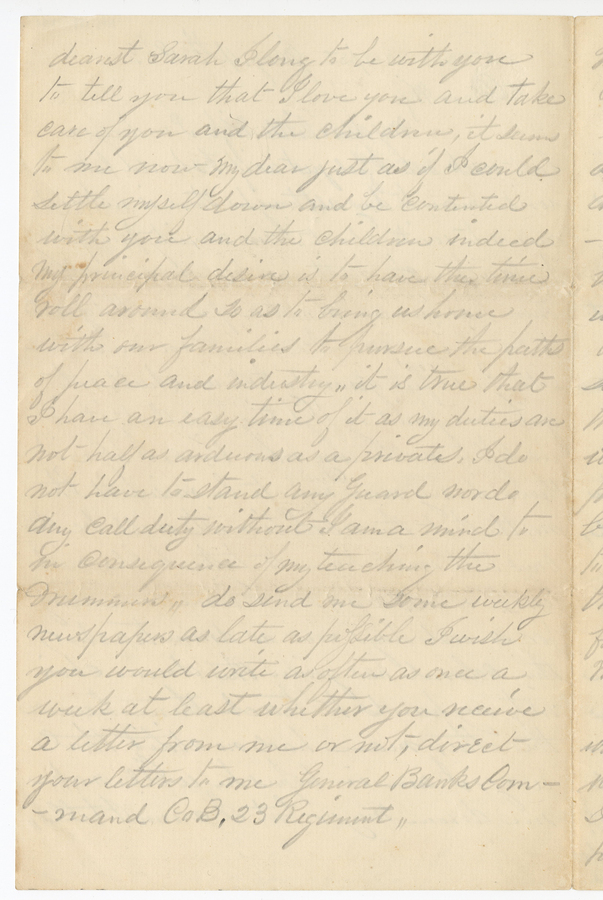 dearest Sarah I long to be with you
to tell you that I love you and take
care of you and the children, it seems
to me now my dear just as if I could
settle myself down and be contented
with you and the children indeed
my principal desire is to have the time
roll around so as to bring us home
with our families to pursue the paths
of peace and industry,, it is true that
I have an easy time of it as my duties are
not half as arduous as a privates. I do
not have to stand any Guard nor do
any Call duty without I am a mind to
in consequence of my teaching the
Drummers,, do send me some weekly
newspapers as late as possible I wish
you would write as often as once a
week at least whether you receive
a letter from me or not, direct
your letters to me General Banks Com-
-mand Co B, 23 Regiment,,